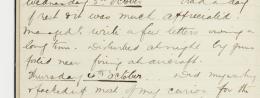 Wednesday 5th October Had a day
of rest & it was much appreciated.
managed to write a few letters owing a
long time. Disturbed at night by guns
posted near firing at aircraft.
Thursday 6th October Did my washing
& packed up most of my curios for the